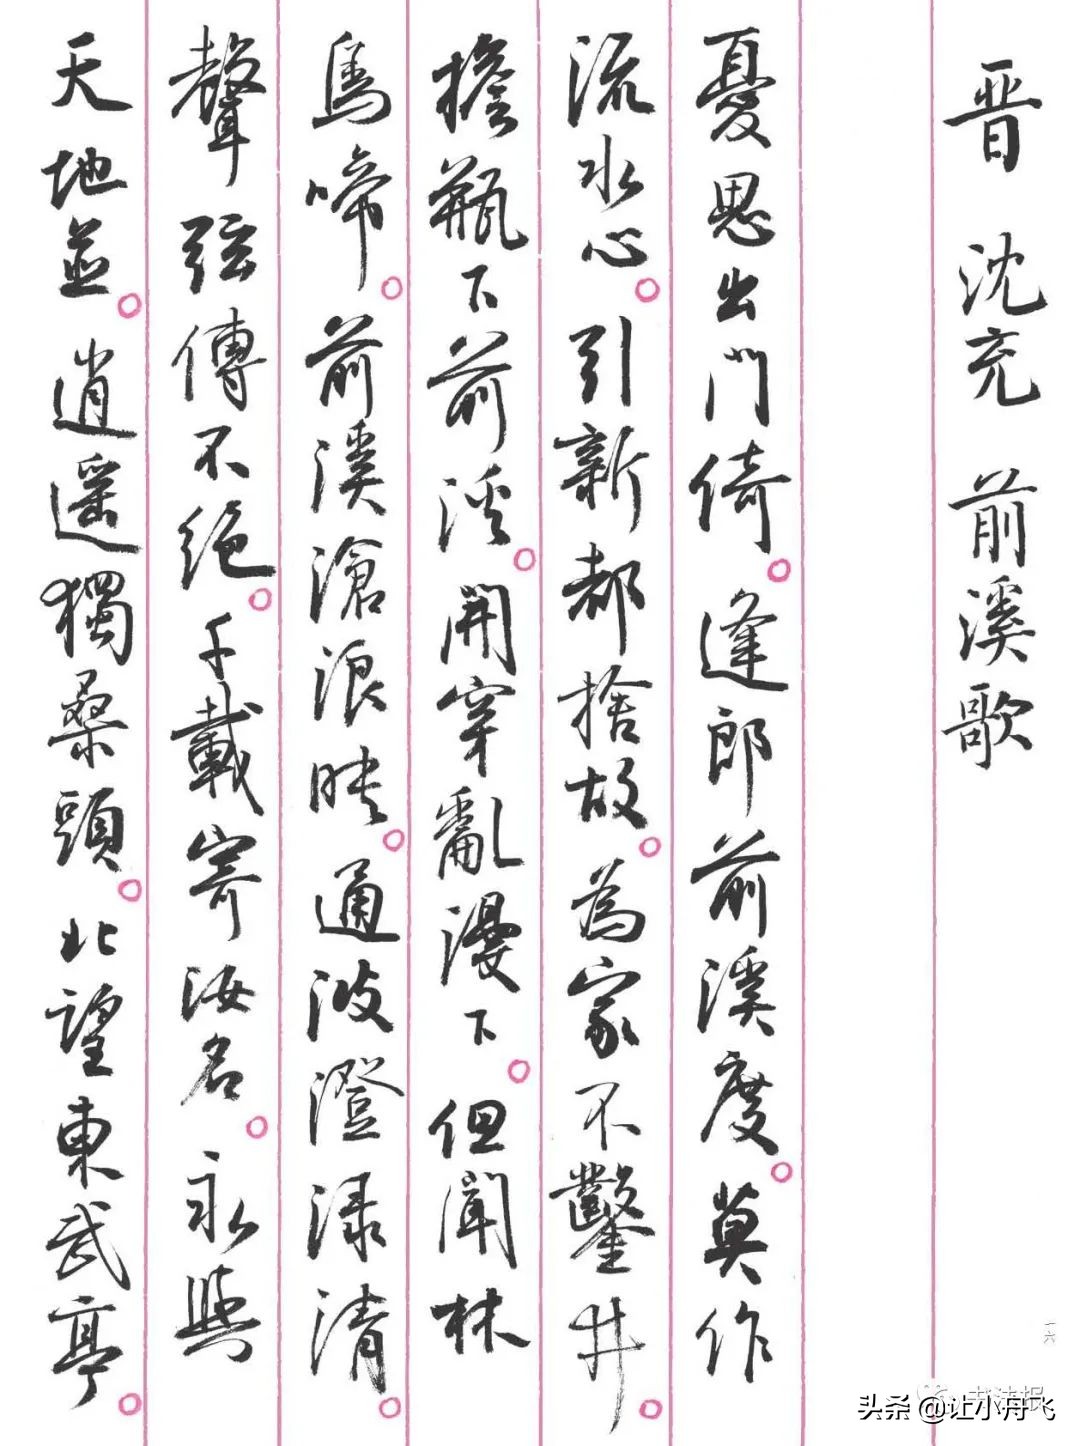 晋 沈充 前溪歌
憂思出門倚。逢郎前溪度。莫作
流水心。引新都捨故。為家不鑿井
擔瓶下前溪。開穿亂漫下。但聞林
鳥啼。前溪滄浪映。通波澄淥清
聲弦傳不絕。千載寄汝名。永與
天地並。逍遥獨桑頭。北望東武亭。
一六
书法报
头条 @让小丹飞